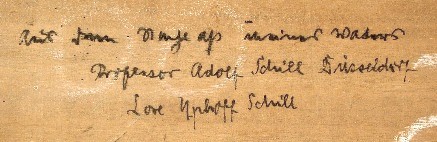 Aus dem Nachlass meines Vaters
Professor Adolf Schill Düsseldorf
Lore Uphoff Schill